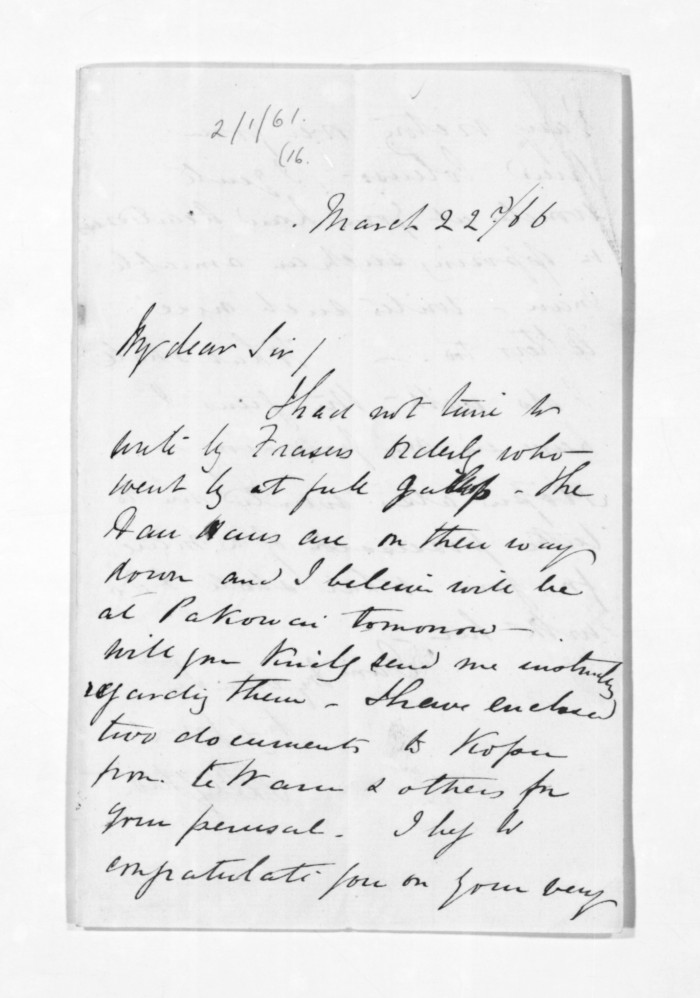 2/1/61.
(16.
March 22nd/66
My dear Sir/
I had not time to
write by Frasers Orderly who
went by at full gallop - The
Hau Haus are on their way
down and I believe will be
at Pakowai tomorrow -
will you kindly send me
regarding them - I have enclosed
two documents to Kopu
from te Waru & others for
your perusal - I beg to
congratulate you on your very